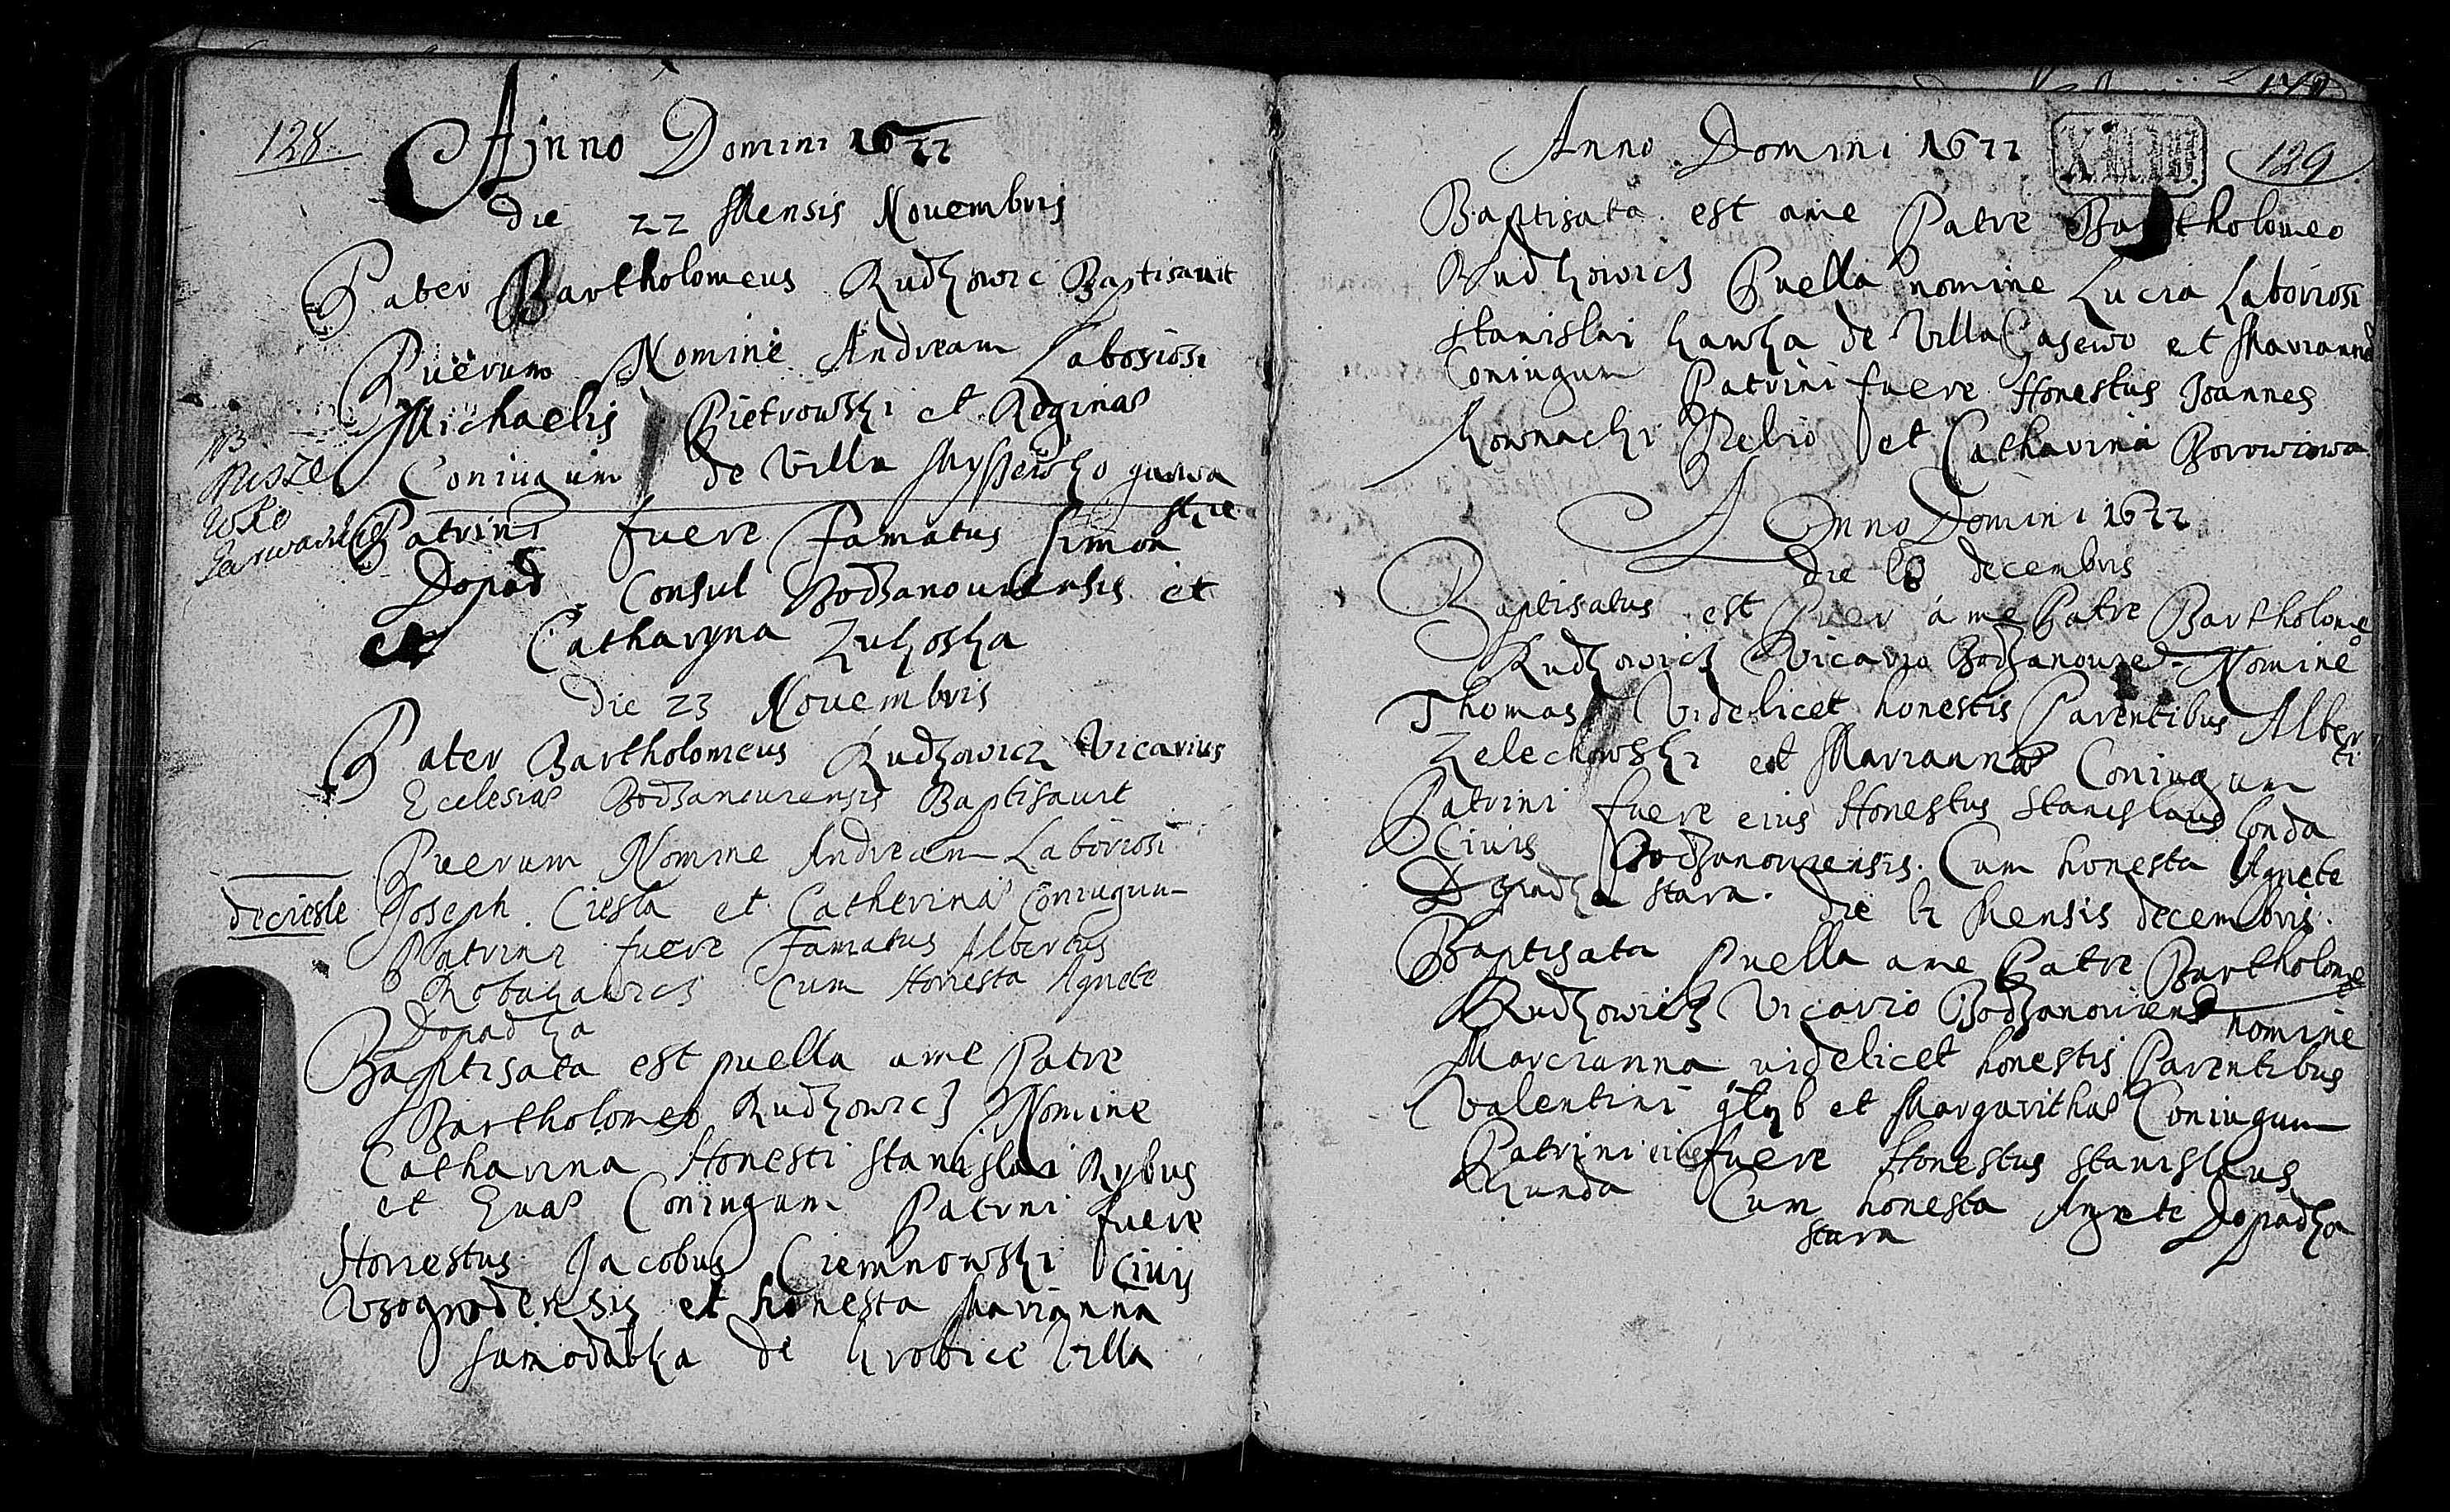 128
Anno Domini 1677
die 22 Mensis Nouembris
Pater Bartholomeus Rudkowic Baptisauit
Puerum Nomine Andream Laboriosi
Michaelis Pietrowski et Reginae
NB
Misze
wko
Garwackie
Coniugum de Villa Myssewko garwa
ckie
Patrini fuere Famatus Simon
Dopad Consul Bodzanouiensis et
et Catharyna Zukoska
die 23 Nouembris
Pater Bartholomeus Rudkowicz Vicarius
Eclesiae Bodzanouiensis Baptisauit
Puerum Nomine Andream Laboriosi
de cieśle
Joseph Ciesla et Catherinae Coniugum
Patrini fuere Famatus Albertus
Cum Honesta Agnete
Dopadka
Baptisata est puella a me Patre
Bartholomeo Rudkowicz Nomine
Catharina Honesti Stanislai Rybus
et Euae Coniugum Patrini fuere
Honestus Jacobus Ciemnowski Ciuis
Vsogrodensis et honesta Marianna
de Villa
Anno Domini 1677
129
Baptisata est a me Patre Bartholomeo
Rudkowicz Puella nomine Lucia Laboriosi
Stanislai kawka de Villa Gasewo et Mariannae
Coniugum Patrini fuere Honestus Joannes
et Catharina Borowiowa
Anno Domini 1677
die decembris
Baptisatus est Puer a me Patre Bartholome
o
Rudkowicz Vicario Bodzanouien Nomine
Thomas Videlicet honestis Parentibus Alber
ti
Zelechowski et Mariannae Coniugum
Patrini fuere eius Honestus Stanislaus
Ciuis Bodzanouiensis Cum honesta Agnete
Dopadka stara. die Mensis decembris.
Baptisata Puella a me Patre Bartholome
o
Rudkowicz Vicario Bodzanouiens nomine
Marcianna videlicet honestis Parentibus
Valentini et Margarithae Coniugum
Patrini eius fuere Honestus Stanislaus
Cum honesta Agnete Dopadka
stara